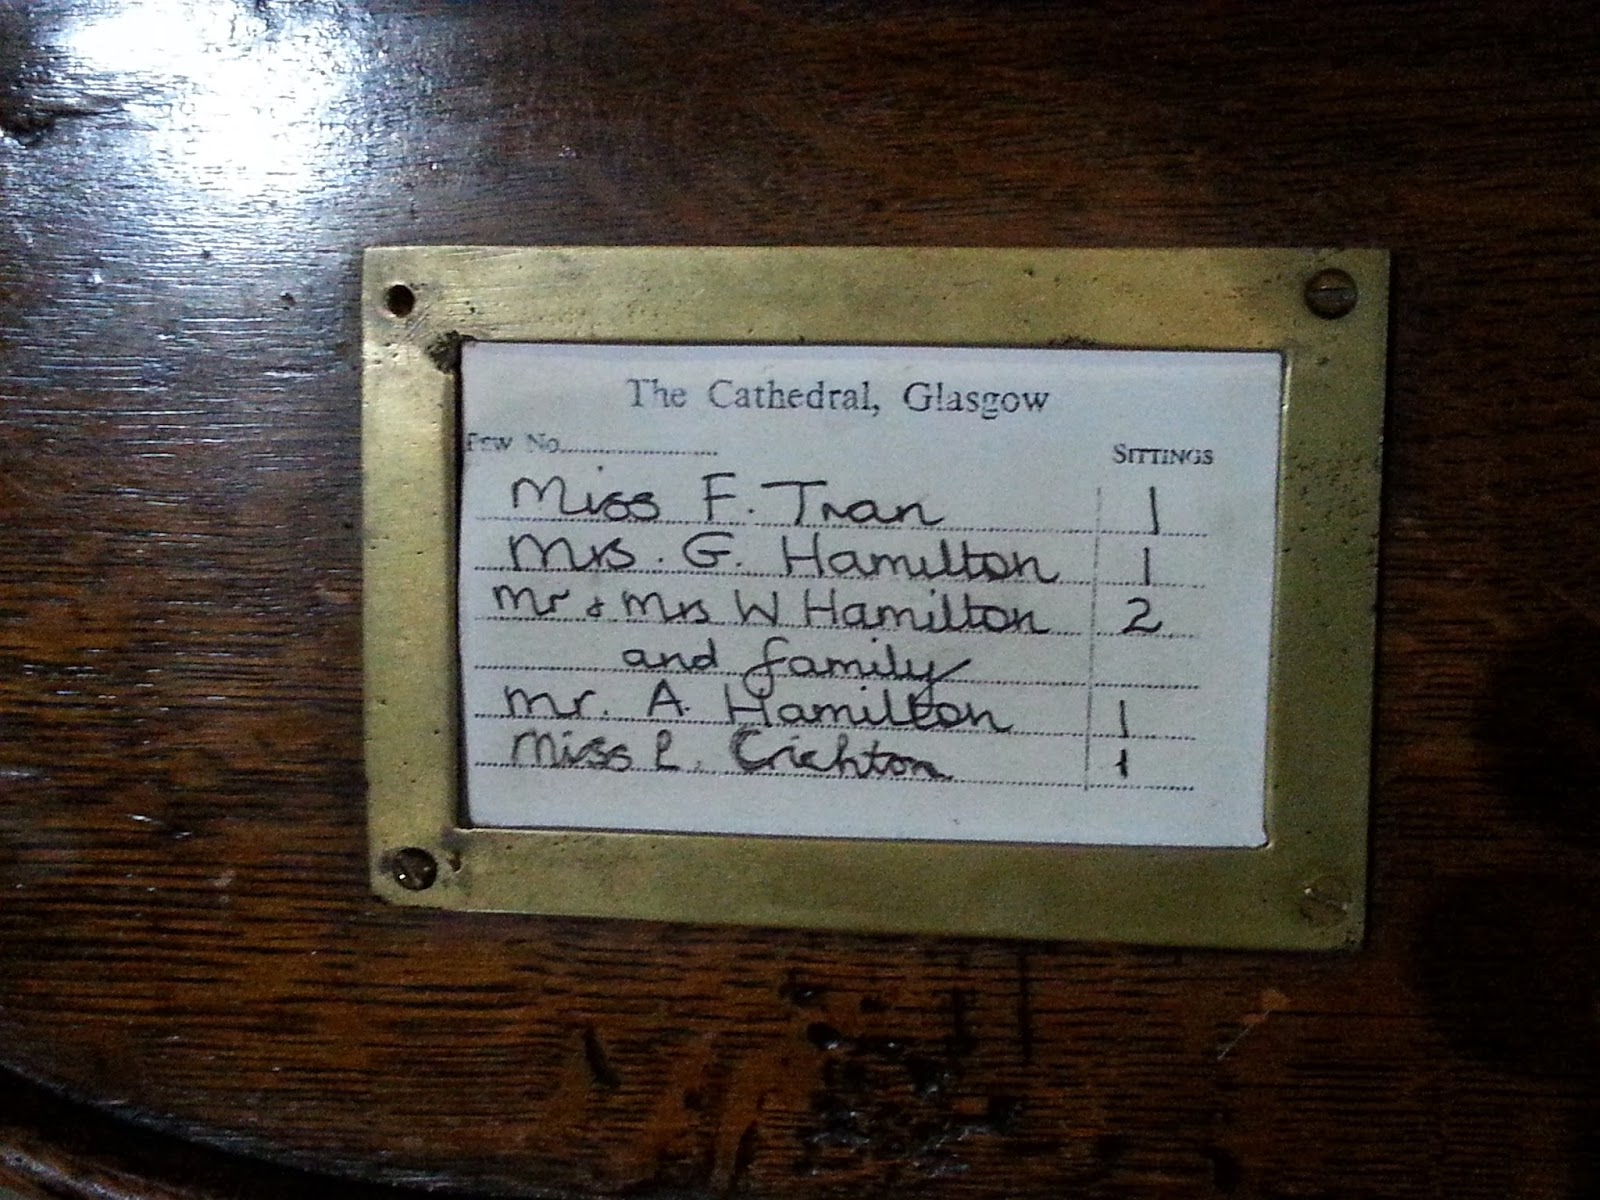 The Cathedral, Glasgow
Pew No. SITTINGS
Miss F. Tran 1
Mrs. G. Hamilton 1
Mr & Mrs W Hamilton 2
and family
Mr. A. Hamilton 1
Miss L. Crichton 1